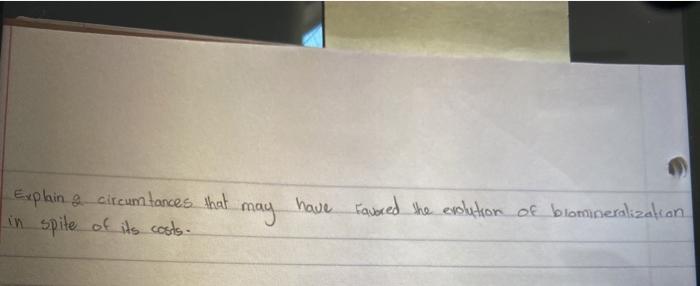 Explain 2 circumtances that may have favored the evolution of biomineralization
in spite of its costs.